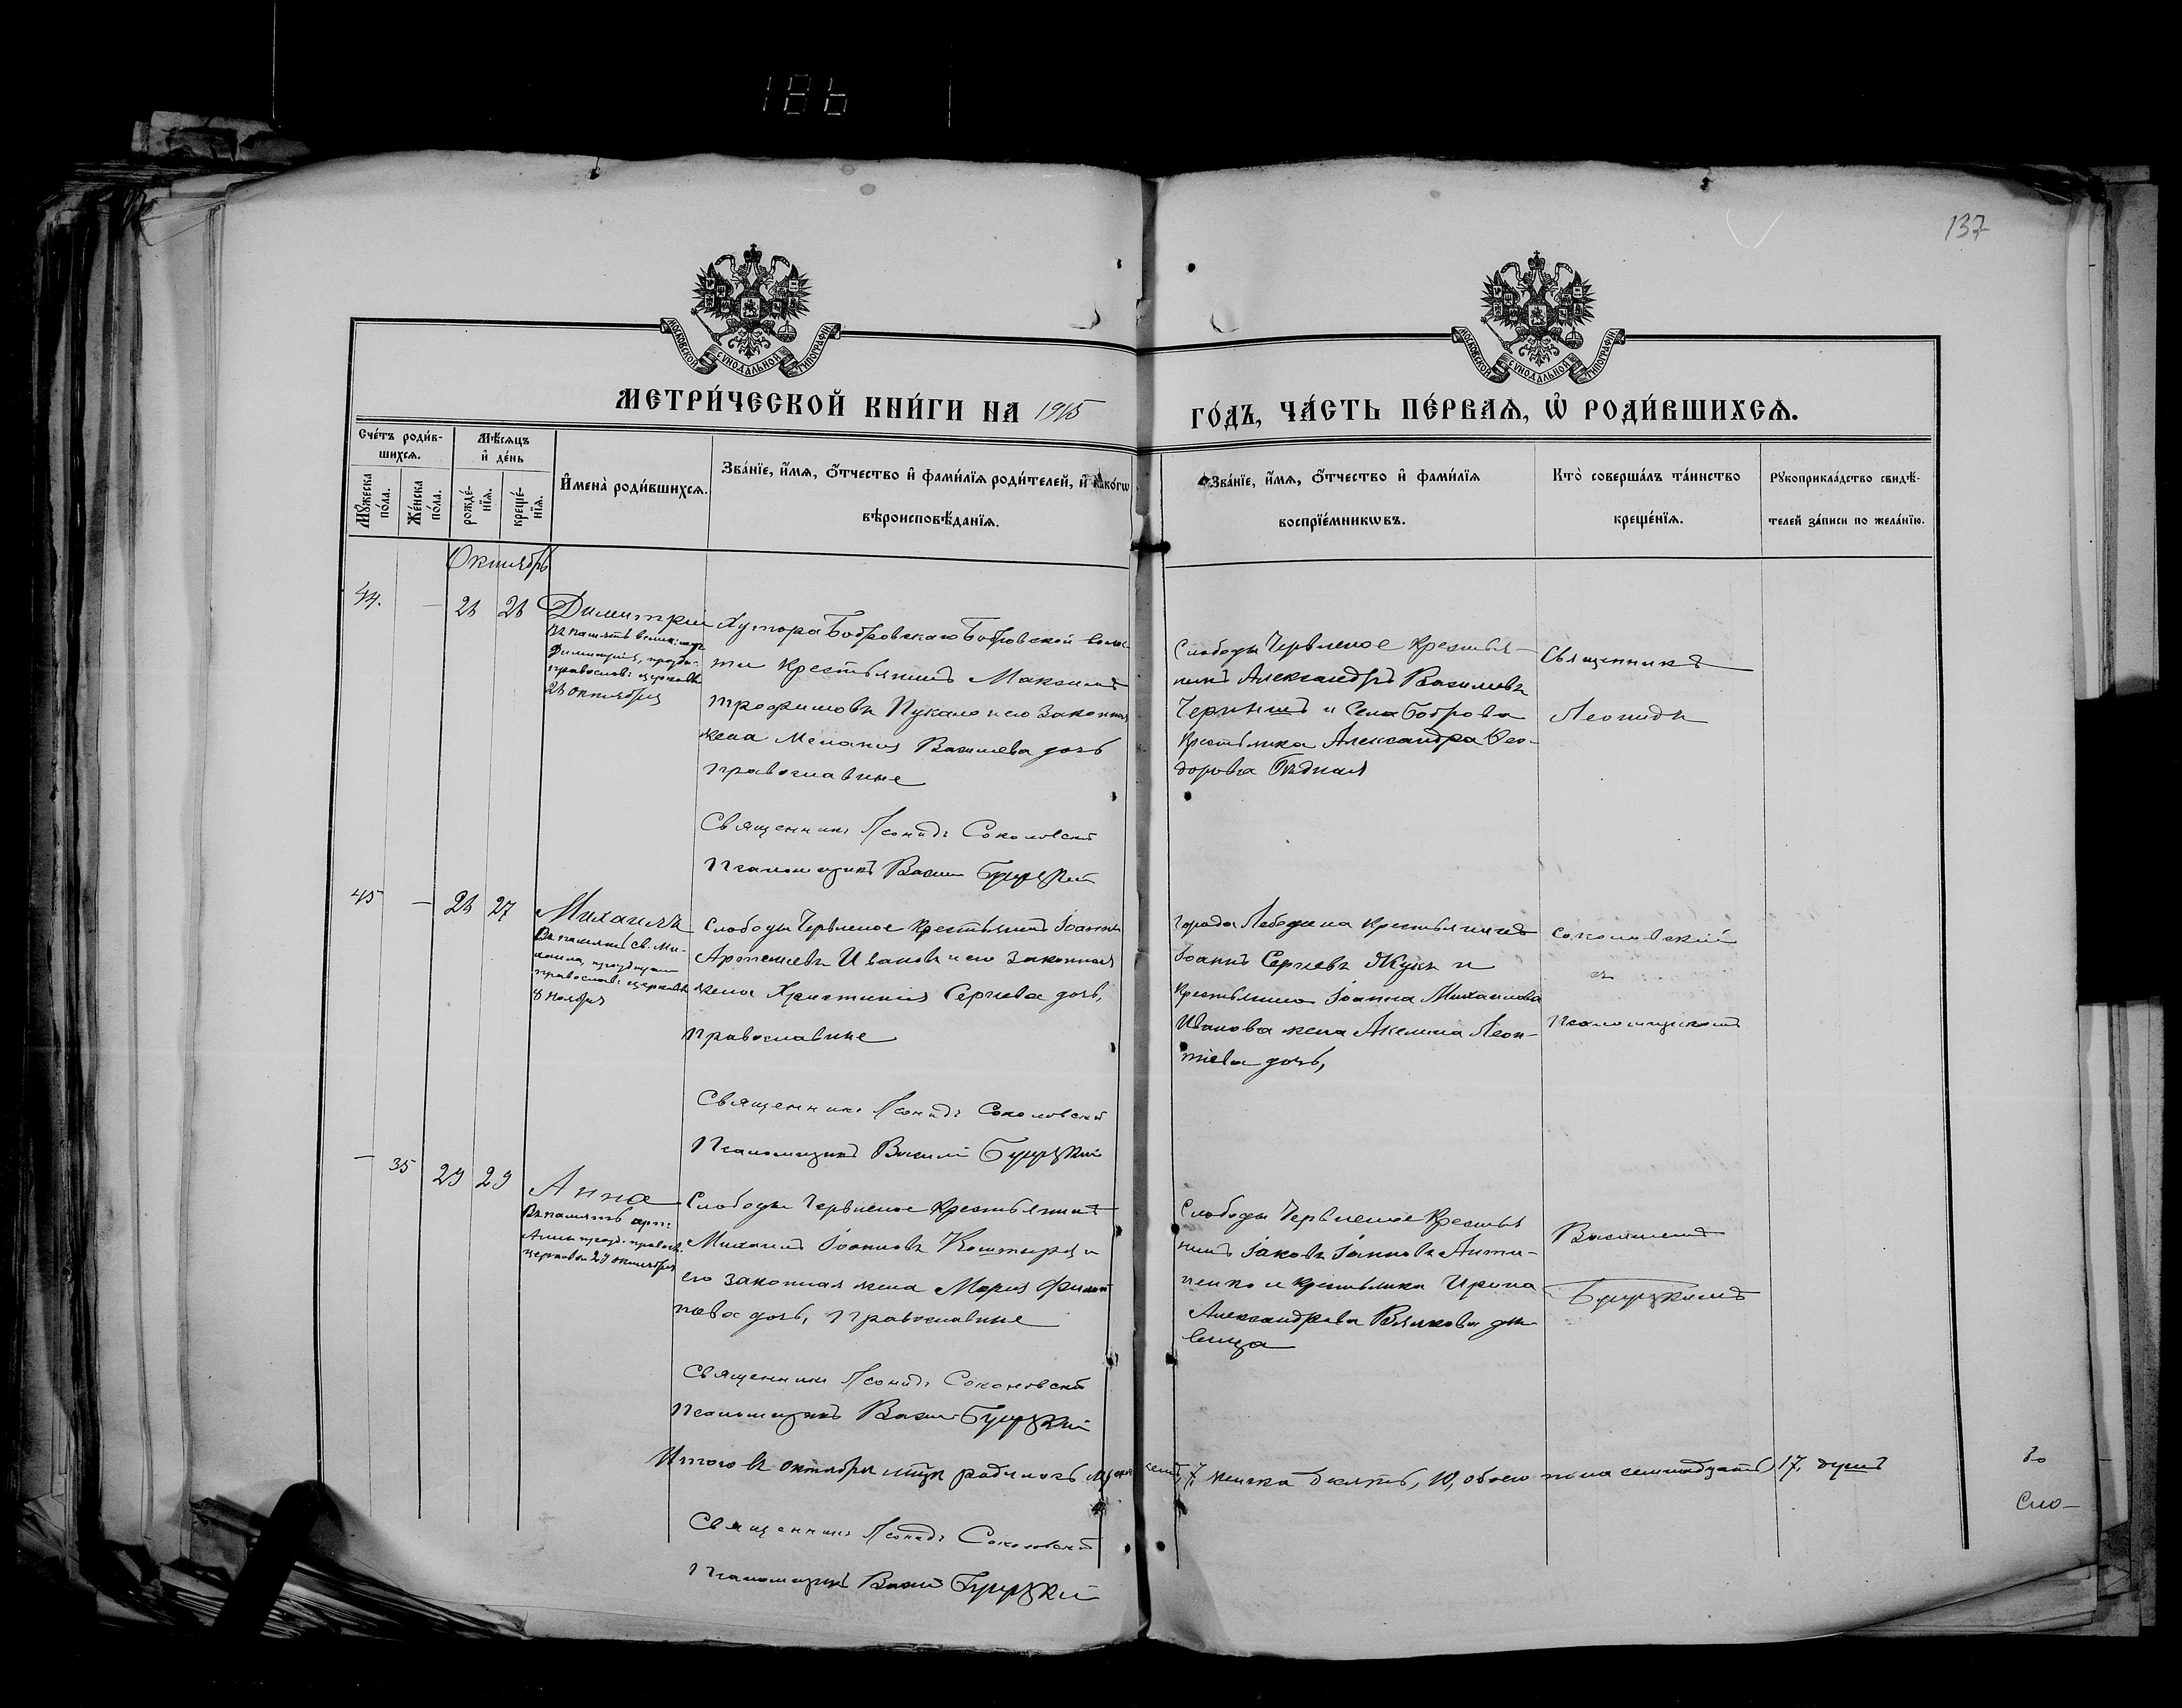 186
137
МОСКОВСКОЙ СѴНОДАЛЬНОЙ ТИПОГРАФІИ
МОСКОВСКОЙ СѴНОДАЛЬНОЙ ТИПОГРАФІИ
МЕТРИ́ЧЕСКОЙ КНИ́ГИ НА 1915
ГО́ДЪ, ЧА́СТЬ ПЕ́РВАѦ, Ѽ РОДИ́ВШИХСѦ.
Сче́тъ роди́в-
шихсѧ.
Мꙋ́жеска по́ла.
Же́нска по́ла.
Мѣ́сѧцъ
и҆ де́нь
рожде́-
нїѧ.
креще́-
нїѧ.
И҆мена̀ роди́вшихсѧ.
Зва́нїе, и҆́мѧ, ѻ҆́тчество и҆ фами́лїѧ роди́телей, и҆ како́гѡ
вѣроисповѣ́данїѧ.
Зва́нїе, и҆́мѧ, ѻ҆́тчество и҆ фами́лїѧ
воспрїе́мникѡвъ.
Кто̀ соверша́лъ та́инство
креще́нїѧ.
Рꙋкоприкла́дство свидѣ́-
телей за́писи по жела́нїю.
Октябрь
44. — 26 26 Димитрій
Въ память велик: муч
Димитрія, празд.
православ: церковью
26 октября
Хутора Бобровскаго Бобровской волос
ти крестьянинъ Максимъ
Трофимовъ Пукало и его законная
жена Меланія Василіева дочь
православные
Священникъ Леонидъ Соколовскій
Псаломщикъ Василій
Слободы Червленое крестья-
нинъ Александръ Василіевъ
Чернышъ и Села Боброва
крестьянка Александра Ѳео-
дорова Бѣдная
Священникъ
Леонидъ
45 — 26 27 Михаилъ
Въ память св. Ми-
хаила, празднуем
православ: церковью
8 ноября
Слободы Червленое крестьянинъ Іоаннъ
Артемьевъ Ивановъ и его законная
жена Христинія Сергіева дочь,
православные
Священникъ Леонидъ Соколовскій
Псаломщикъ Василій
Города Лебедина крестьянинъ
Іоаннъ Сергіевъ Жукъ и
крестьянина Іоанна Михаилова
Иванова жена Акелина Леон-
тіева дочь,
Соколовскій
съ
Псаломщикомъ
— 35 29 29 Анна
Въ память
Анны празд. правосл.
церковью 29 октября
Слободы Червленое крестьянинъ
Михаилъ Іоанновъ Коштира и
его законная жена Марія Филип
пова дочь, православные
Священникъ Леонидъ Соколовскій
Псаломщикъ Василій
Слободы Червленое крестья
нинъ Іаковъ Іоанновъ Анти-
пенко и крестьянка Ирина
Александрова Волкова дѣ-
вица
Василіемъ
Итого въ октябрѣ мѣсяцѣ родилось мужска семь, 7, женска десять, 10, обоего пола семнадцать, 17, душъ
Священникъ Леонидъ Соколовскій
Псаломщикъ Василій